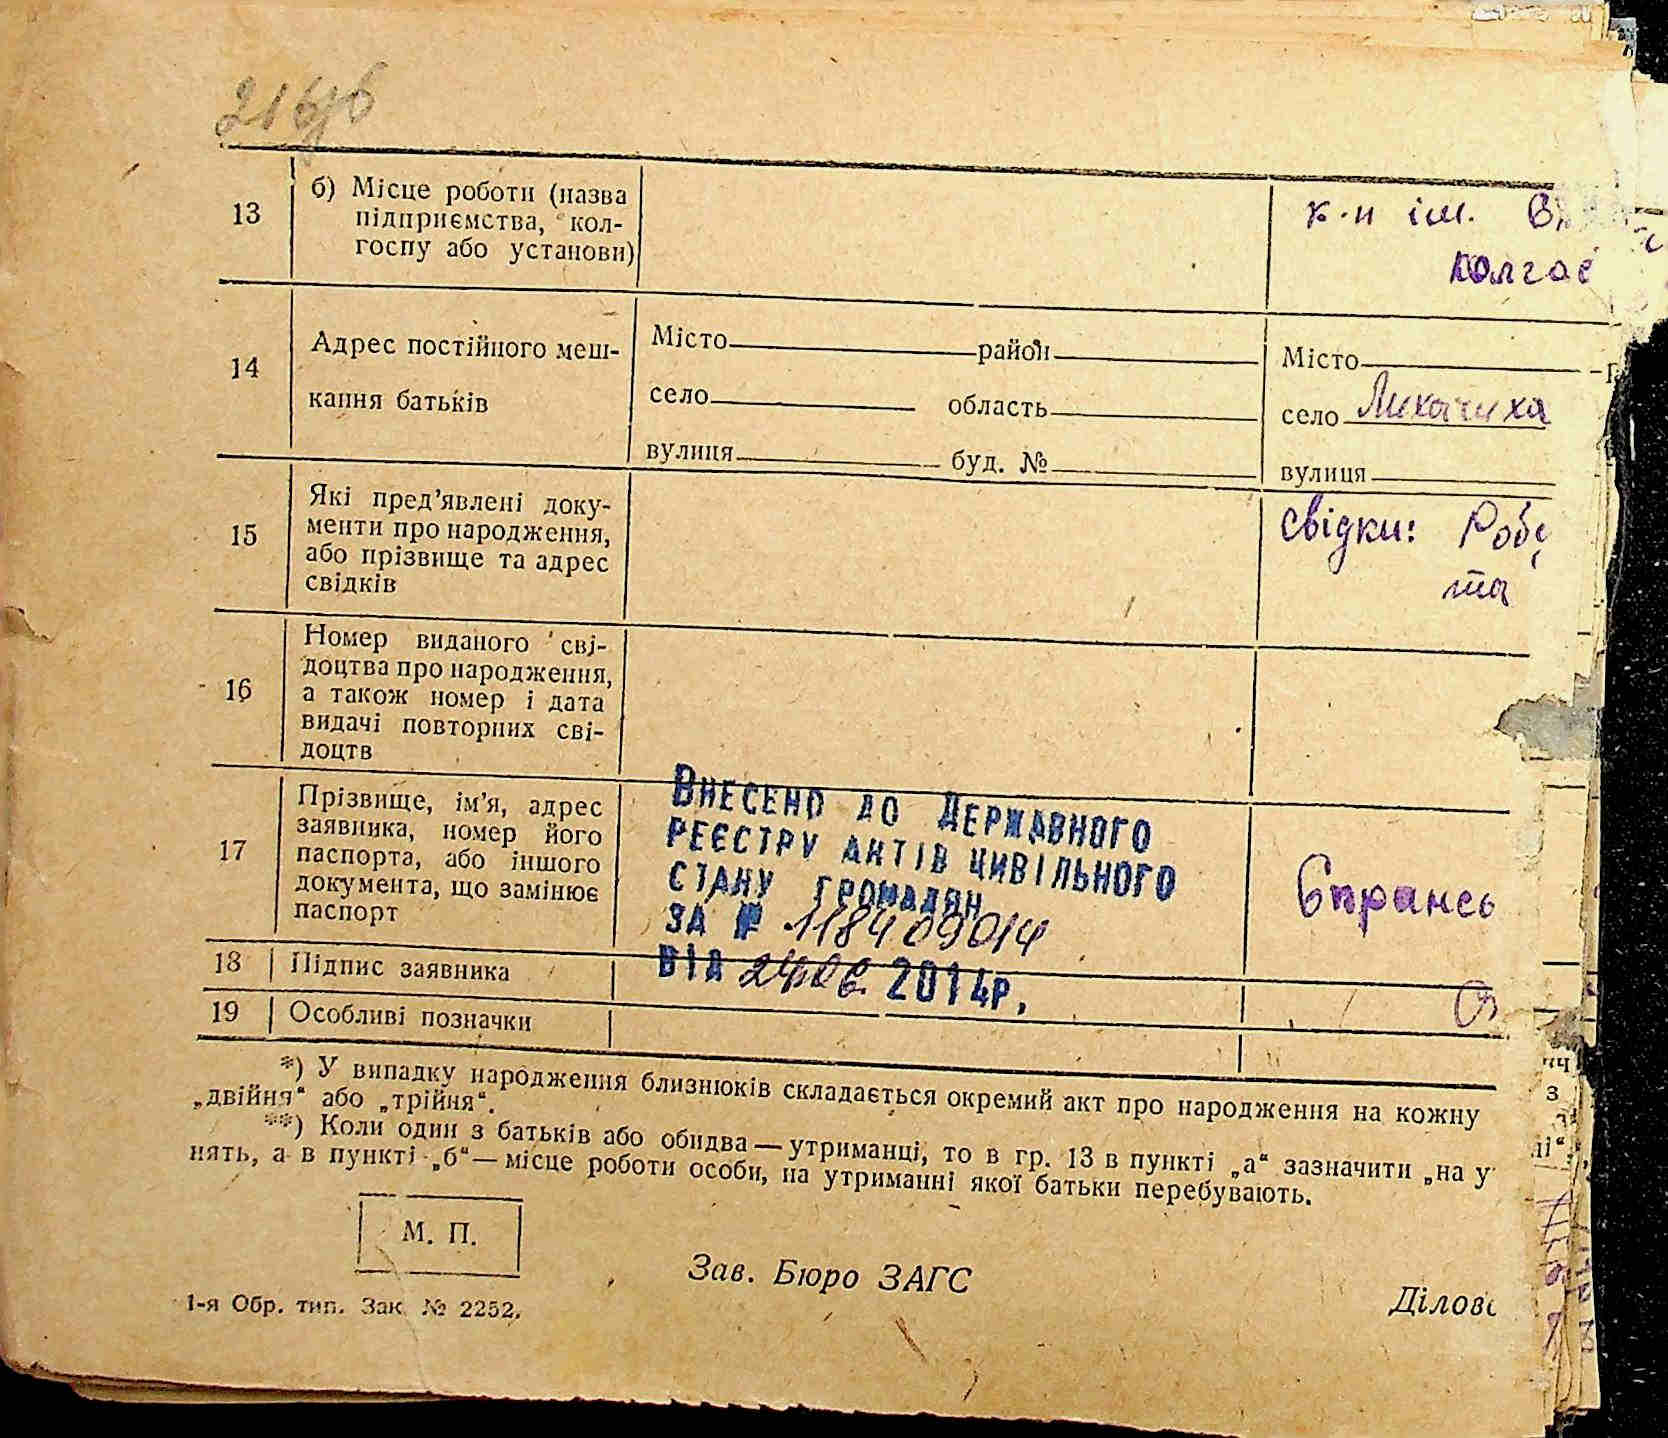 13
б) Місце роботи (назва
підприємства, кол-
госпу або установи)
к-п ім.
колгос
14
Адрес постійного меш-
кання батьків
Місто район
село область
вулиця буд. №
Місто
село Лихачиха
вулиця
15
Які пред’явлені доку-
менти про народження,
або прізвище та адрес
свідків
свідки:
та
16
Номер виданого сві-
доцтва про народження,
а також номер і дата
видачі повторних сві-
доцтв
17
Прізвище, ім’я, адрес
заявника, номер його
паспорта, або іншого
документа, що замінює
паспорт
ВНЕСЕНО ДО ДЕРЖАВНОГО
РЕЄСТРУ АКТІВ ЦИВІЛЬНОГО
СТАНУ ГРОМАДЯН
ЗА № 118409014
ВІД 2014р.
18 Підпис заявника
19 Особливі позначки
*) У випадку народження близнюків складається окремий акт про народження на кожну
„двійня“ або „трійня“.
**) Коли один з батьків або обидва — утриманці, то в гр. 13 в пункті „а“ зазначити „на у
нять, а в пункті „б“ — місце роботи особи, на утриманні якої батьки перебувають.
М. П.
Зав. Бюро ЗАГС
Ділов
1-я Обр. тип. Зак. № 2252.